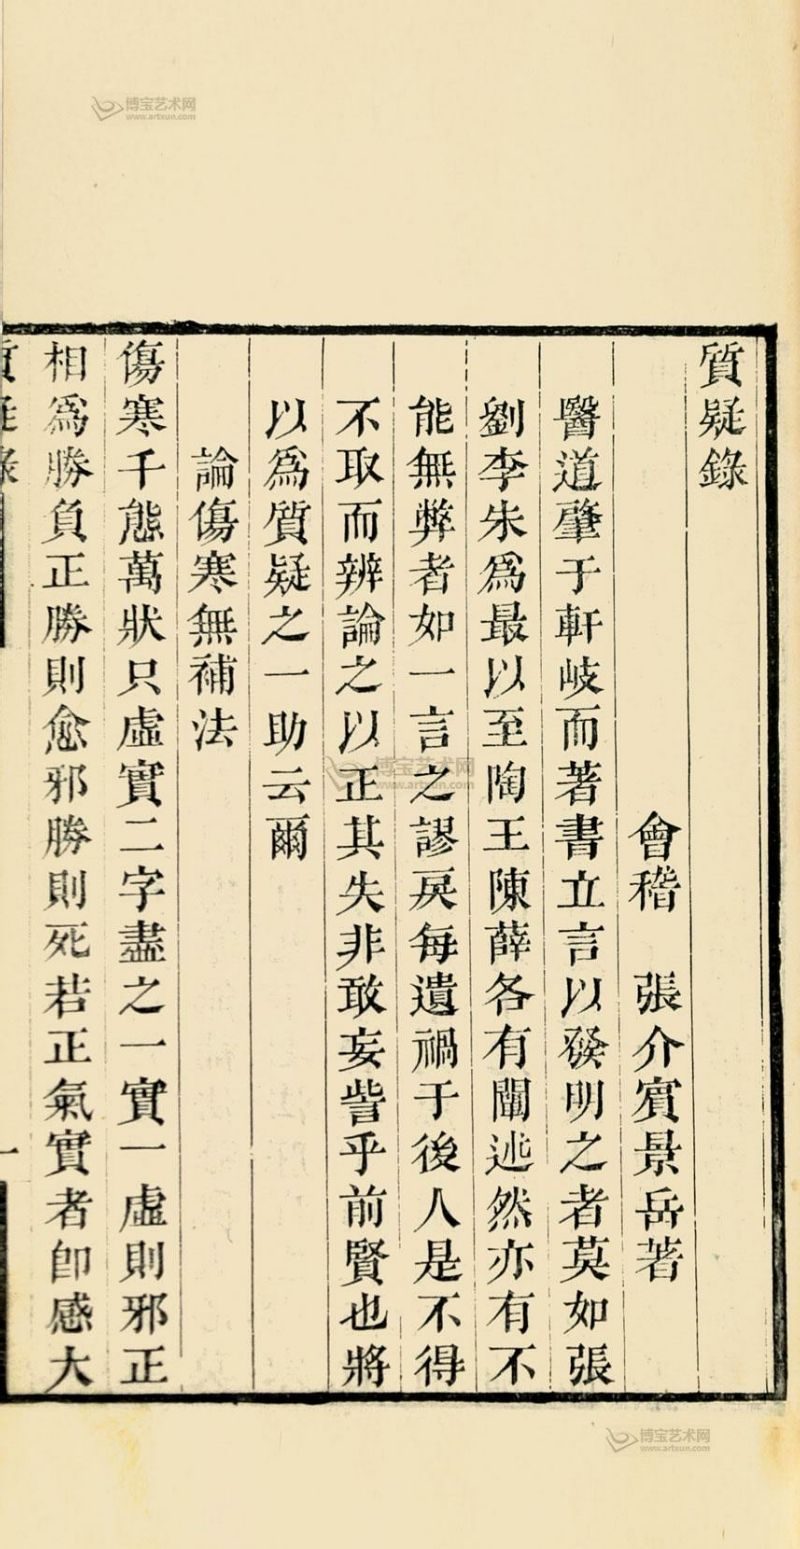 質疑錄
會稽　張介賓景岳著
醫道肇于軒岐而著書立言以發明之者莫如張
劉李朱爲最以至陶王陳薛各有闡述然亦有不
能無弊者如一言之謬戾每遺禍于後人是不得
不取而辨論之以正其失非敢妄訾乎前賢也將
以爲質疑之一助云爾
論傷寒無補法
傷寒千態萬狀只虛實二字盡之一實一虛則邪正
相爲勝負正勝則愈邪勝則死若正氣實者卽感大
質疑錄
一
博宝艺术网
www.artxun.com
博宝艺术网
www.artxun.com
博宝艺术网
www.artxun.com